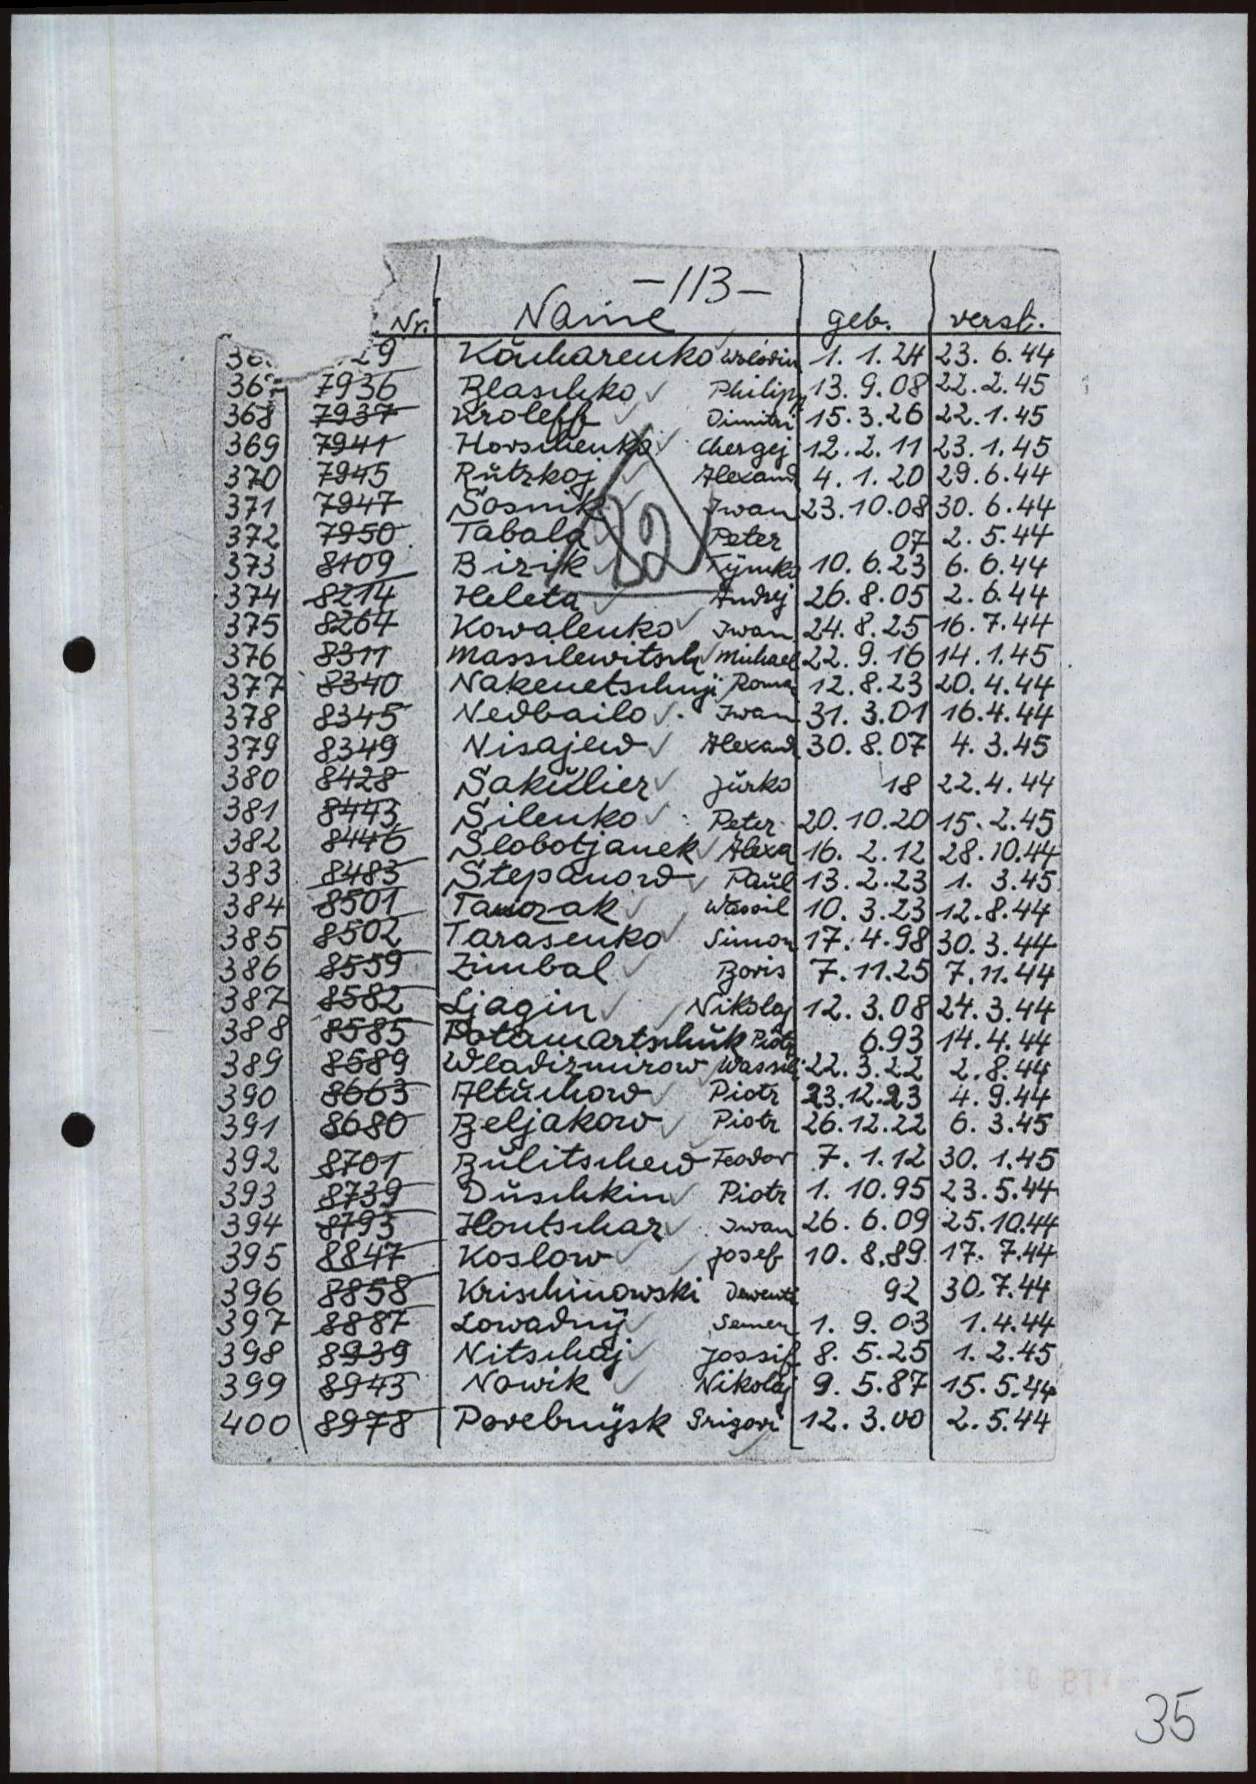 -113-
Nr. Name geb. verst.
36 29 Kaucharenko Wolodin 1. 1. 24 23. 6. 44
36 7936 Blaschko Philipp 13. 9. 08 22. 2. 45
368 7937 Kroleff Dimitri 15. 3. 26 22. 1. 45
369 7941 Horschenko Chergej 12. 2. 11 23. 1. 45
370 7945 Rŭtzkoj Alexand 4. 1. 20 29. 6. 44
371 7947 Sosnik Iwan 23. 10. 08 30. 6. 44
372 7950 Tabala Peter 07 2. 5. 44
373 8109 Birik Tÿmko 10. 6. 23 6. 6. 44
374 8214 Heleta Andrej 26. 8. 05 2. 6. 44
375 8264 Kowalenko Iwan 24. 8. 25 16. 7. 44
376 8311 Massilewitsch Michael 22. 9. 16 14. 1. 45
377 8340 Nakenetschnyj Roman 12. 8. 23 20. 4. 44
378 8345 Nedbailo Iwan 31. 3. 01 16. 4. 44
379 8349 Nisajew Alexand 30. 8. 07 4. 3. 45
380 8428 Sakŭlier Jŭrko 18 22. 4. 44
381 8443 Silenko Peter 20. 10. 20 15. 2. 45
382 8446 Slobotjanek Alexa 16. 2. 12 28. 10. 44
383 8483 Stepanow Paŭl 13. 2. 23 1. 3. 45
384 8501 Tanozak Wassil 10. 3. 23 12. 8. 44
385 8502 Tarasenko Simon 17. 4. 98 30. 3. 44
386 8559 Zimbal Boris 7. 11. 25 7. 11. 44
387 8582 Ljagin Nikolaj 12. 3. 08 24. 3. 44
388 8585 Potamartschŭk Piotr 6. 93 14. 4. 44
389 8589 Wladizmirow Wassili 22. 3. 22 2. 8. 44
390 8663 Altŭchow Piotr 23. 12. 23 4. 9. 44
391 8680 Beljakow Piotr 26. 12. 22 6. 3. 45
392 8701 Bŭlitschew Feodor 7. 1. 12 30. 1. 45
393 8739 Dŭschkin Piotr 1. 10. 95 23. 5. 44
394 8793 Hontschar Iwan 26. 6. 09 25. 10. 44
395 8847 Koslow Josef 10. 8. 89 17. 7. 44
396 8858 Krischinowski 92 30. 7. 44
397 8887 Lowadnÿ Semen 1. 9. 03 1. 4. 44
398 8939 Nitschaj Jossif 8. 5. 25 1. 2. 45
399 8943 Nowik Nikolaj 9. 5. 87 15. 5. 44
400 8978 Porebnÿsk Grigori 12. 3. 00 2. 5. 44
35